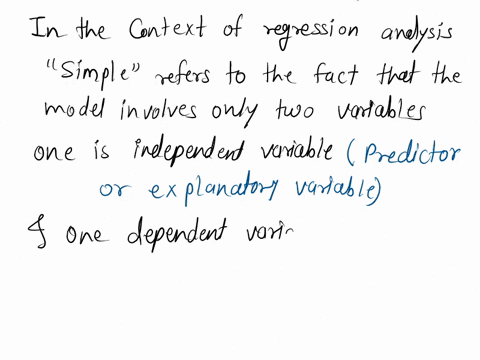 In the Context of regression analysis
"Simple" refers to the fact that the
model involves only two variables
one is independent variable (Predictor
or explanatory variable)
& one dependent vari